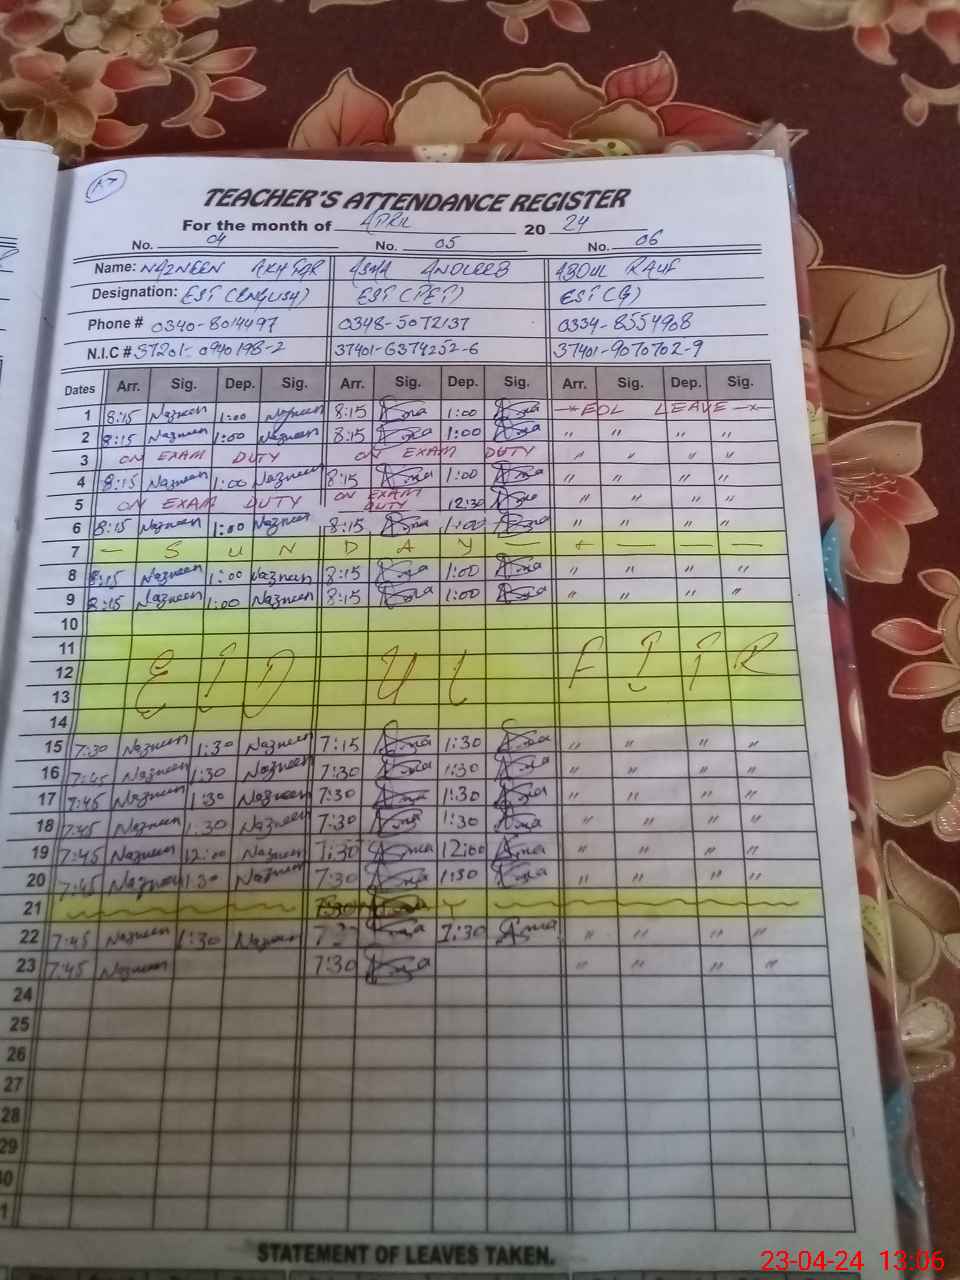 TEACHER'S ATTENDANCE REGISTER
For the month of APRIL 20 24
No. 04 No. 05 No. 06
Name: NAZNEEN AKHTAR ASMA ANDLEEB ABDUL RAUF
Designation: EST (ENGLISH) EST (PET) EST (G)
Phone # 0340-8014497 0348-5072137 0334-8554968
N.I.C # 37201-0940198-2 37401-6374252-6 37401-9070702-9
Dates Arr. Sig. Dep. Sig. Arr. Sig. Dep. Sig. Arr. Sig. Dep. Sig.
1 8:15 Nazneen 1:00 Nazneen 8:15 Asma 1:00 Asma EOL LEAVE
2 8:15 Nazneen 1:00 Nazneen 8:15 Asma 1:00 Asma " " " "
3 ON EXAM DUTY ON EXAM DUTY " " " "
4 8:15 Nazneen 1:00 Nazneen 8:15 Asma 1:00 Asma " " " "
5 ON EXAM DUTY ON EXAM DUTY 12:30 Asma " " " "
6 8:15 Nazneen 1:00 Nazneen 8:15 Asma 1:00 Asma " " " "
7 — S U N D A Y — — — — —
8 8:15 Nazneen 1:00 Nazneen 8:15 Asma 1:00 Asma " " " "
9 8:15 Nazneen 1:00 Nazneen 8:15 Asma 1:00 Asma " " " "
10
11
12 EID UL FITR
13
14
15 7:30 Nazneen 1:30 Nazneen 7:15 Asma 1:30 Asma " " " "
16 7:45 Nazneen 1:30 Nazneen 7:30 Asma 1:30 Asma " " " "
17 7:45 Nazneen 1:30 Nazneen 7:30 Asma 1:30 Asma " " " "
18 7:45 Nazneen 1:30 Nazneen 7:30 Asma 1:30 Asma " " " "
19 7:45 Nazneen 12:00 Nazneen 7:30 Asma 12:00 Asma " " " "
20 7:45 Nazneen 1:30 Nazneen 7:30 Asma 1:30 Asma " " " "
21 7:30 Y
22 7:45 Nazneen 1:30 Nazneen Asma 1:30 Asma " " " "
23 7:45 Nazneen 7:30 Asma " " " "
24
25
26
27
28
29
STATEMENT OF LEAVES TAKEN.
23-04-24 13:06